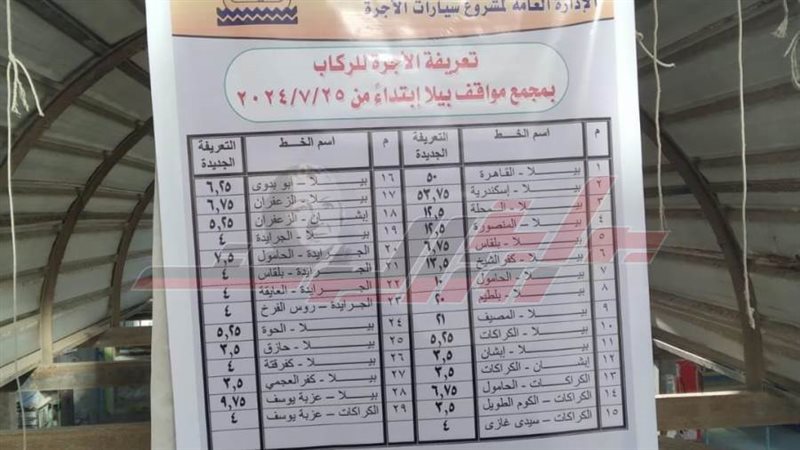 الإدارة العامة لمشروع سيارات الأجرة
تعريفة الأجرة للركاب
بمجمع مواقف بيلا إبتداءً من ٢٠٢٤/٧/٢٥
م اسم الخط التعريفة الجديدة م اسم الخط التعريفة الجديدة
١ بيلا - القاهرة ٥٠ ١٦ بيلا – ابو بدوى ٦,٢٥
٢ بيلا - إسكندرية ٥٣,٧٥ ١٧ بيلا - الزعفران ٦,٧٥
٣ بيلا - المحلة ١٢,٥ ١٨ إبشان - الزعفران ٥,٢٥
٤ بيلا - المنصورة ١٢,٥ ١٩ بيلا - الجرايدة ٤
٥ بيلا - بلقاس ٦,٧٥ الجرايدة - الحامول ٧,٥
بيلا - كفر الشيخ ١٣,٥ الجرايدة - بلقاس ٤
٧ بيلا - الحامول ١٠ الجرايدة - العايقة ٤
٨ بيلا - بلطيم ٢٠ ٢٣ الجرايدة – روس الفرخ ٤
٩ بيلا - المصيف ٢١ ٢٤ بيلا - الحوة ٥,٢٥
١٠ بيلا - الكراكات ٥,٢٥ ٢٥ بيلا - حازق ٣,٥
١١ بيلا - إبشان ٣,٥ ٢٦ بيلا - كفرقتة ٤
١٢ إبشان - الكراكات ٣,٥ ٢٧ بيلا - كفر العجمي ٣,٥
١٣ الكراكات - الحامول ٦,٧٥ ٢٨ بيلا – عزبة يوسف ٩,٧٥
١٤ الكراكات - الكوم الطويل ٣,٥ ٢٩ الكراكات – عزبة يوسف ٤
١٥ الكراكات - سيدى غازى ٤